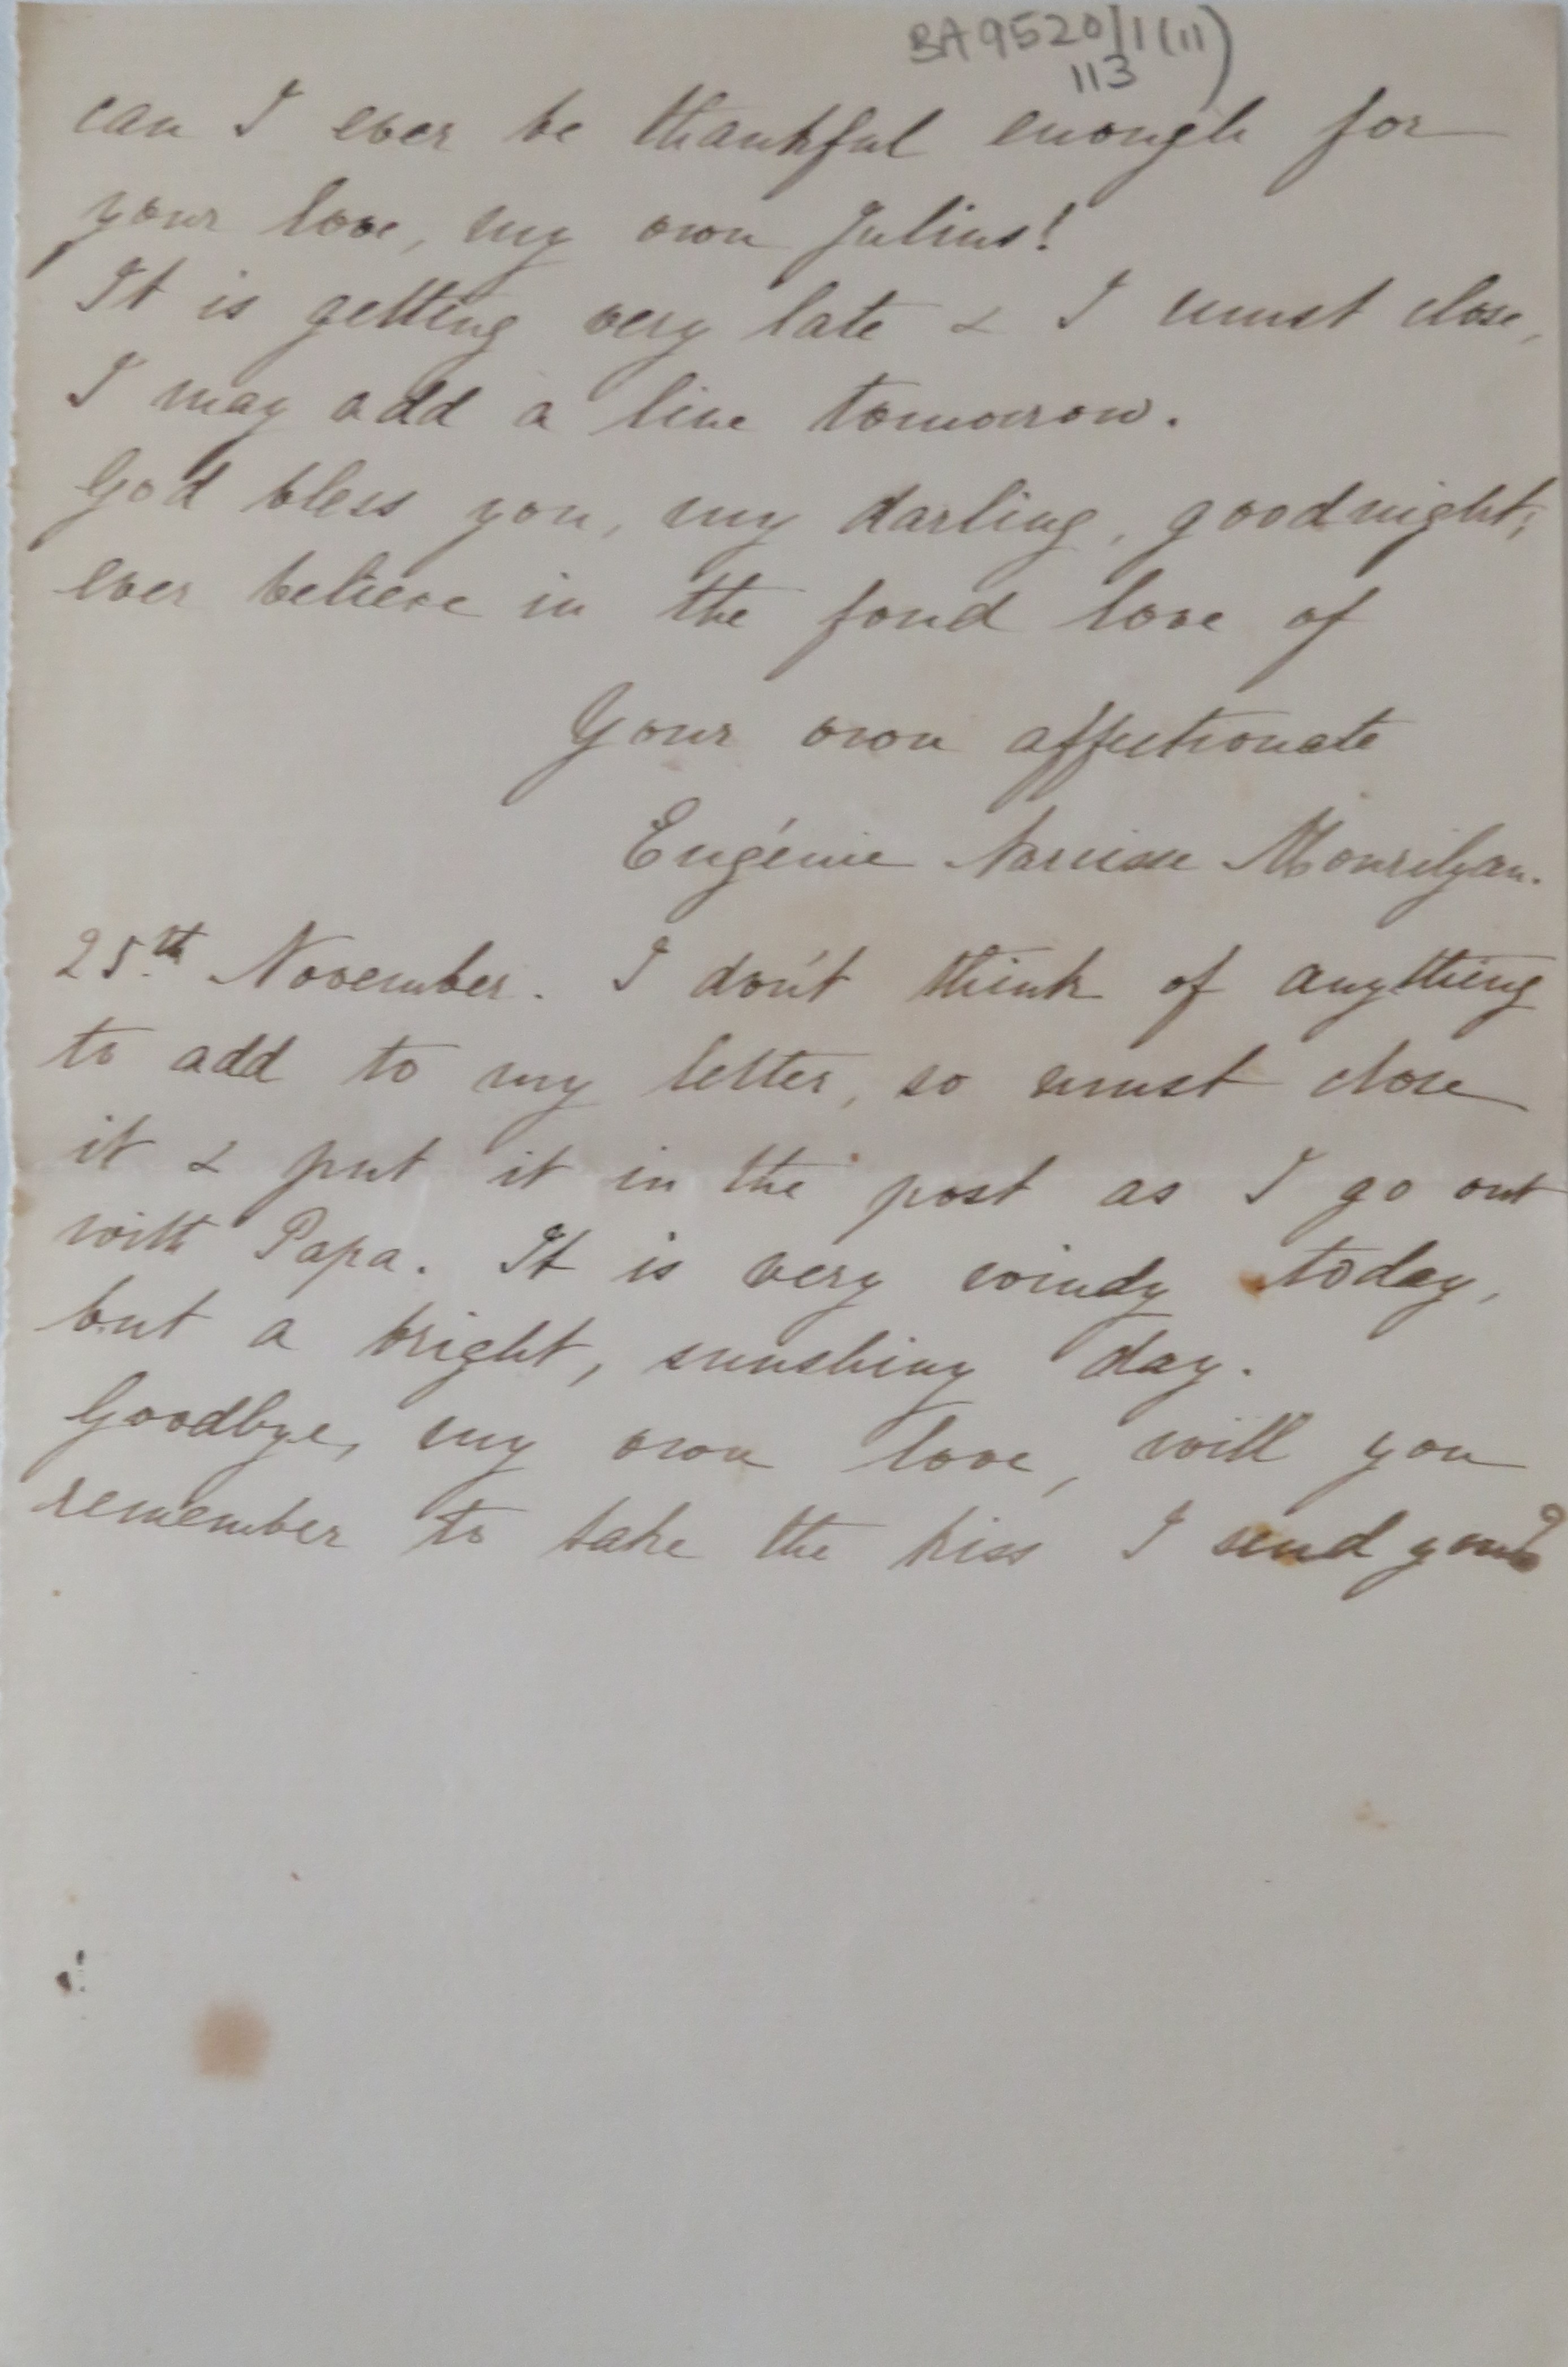 BA9520/1(11)
113
can I ever be thankful enough for
your love, my own Julius!
It is getting very late & I must close,
I may add a line tomorrow.
God bless you, my darling, goodnight;
ever believe in the fond love of
Your own affectionate
Eugénie Narcisse Mourilyan.
25th November. I don't think of anything
to add to my letter, so must close
it & put it in the post as I go out
with Papa. It is very windy today,
but a bright, sunshiny day.
Goodbye, my own love, will you
remember to take the kiss I send you?